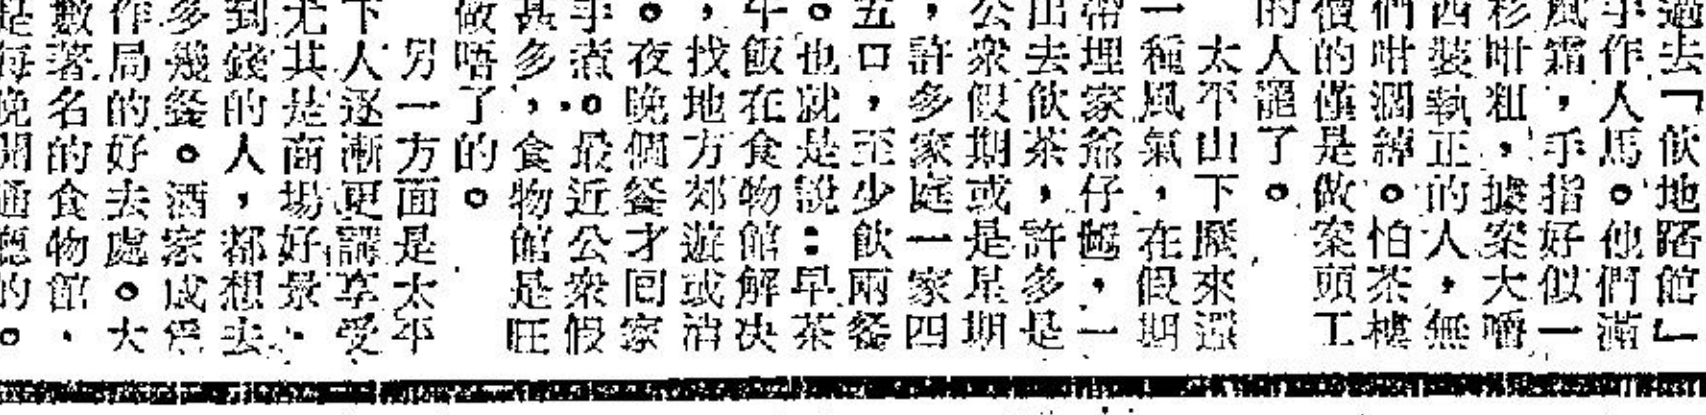 過去「飲地踎館」
作人馬。他們滿
風霜,手指好似一
衫咁粗,據案大嚼
西裝執正的人,無
們咁濶綽。怕茶樓
價的僅是做案頭工
的人罷了。
太平山下歷來還
一種風氣,在假期
帶埋家爺仔乸,一
出去飲茶,許多是
公衆假期或是星期
,許多家庭一家四
五口,至少飲兩餐
。也就是說:早茶
午飯在食物館解决
,找地方郊遊或消
。夜晚個餐才回家
手煮。最近公衆假
甚多,食物館是旺
做唔了的。
另一方面是太平
下人逐漸更講享受
尤其是商場好景,
到錢的人,都想去
多幾餐。酒家成爲
作局的好去處。大
數著名的食物館,
是每晚開通的。